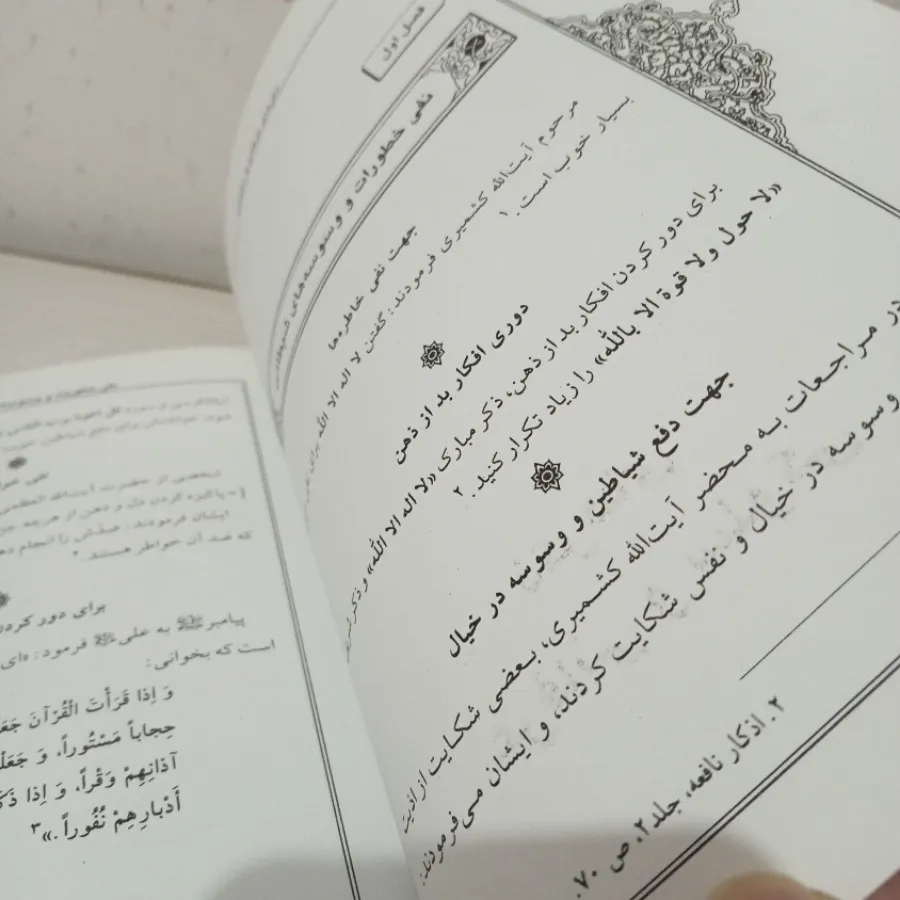 فصل اول
نفی خطورات و وسوسه‌های
جهت نفی خاطره‌ها
مرحوم آیت‌الله کشمیری فرمودند: گفتن لا اله الا الله برای
بسیار خوب است.۱
دوری افکار بد از ذهن
برای دور کردن افکار بد از ذهن، ذکر مبارک «لا اله الا الله» و ذکر
«لا حول ولا قوة الا بالله» را زیاد تکرار کنید.۲
جهت دفع شیاطین و وسوسه در خیال
در مراجعات به محضر آیت‌الله کشمیری، بعضی شکایت از اذیت
وسوسه در خیال و نفس شکایت کردند، و ایشان می‌فرمودند:
۲. اذکار نافعه، جلد ۲، ص ۷۰.
شخصی از حضرت آیت‌الله
پاکیزه کردن دل و ذهن از هرچه
ایشان فرمودند:
که ضد آن خواطر هستند.
برای دور کردن
پیامبر ﷺ به علی فرمود: «ای
است که بخوانی:
وَ إِذا قَرَأْتَ الْقُرْآنَ
حِجاباً مَسْتُوراً، وَ
آذانِهِمْ وَقْراً، وَ إِذا
أَدْبارِهِمْ نُفُوراً.»۳